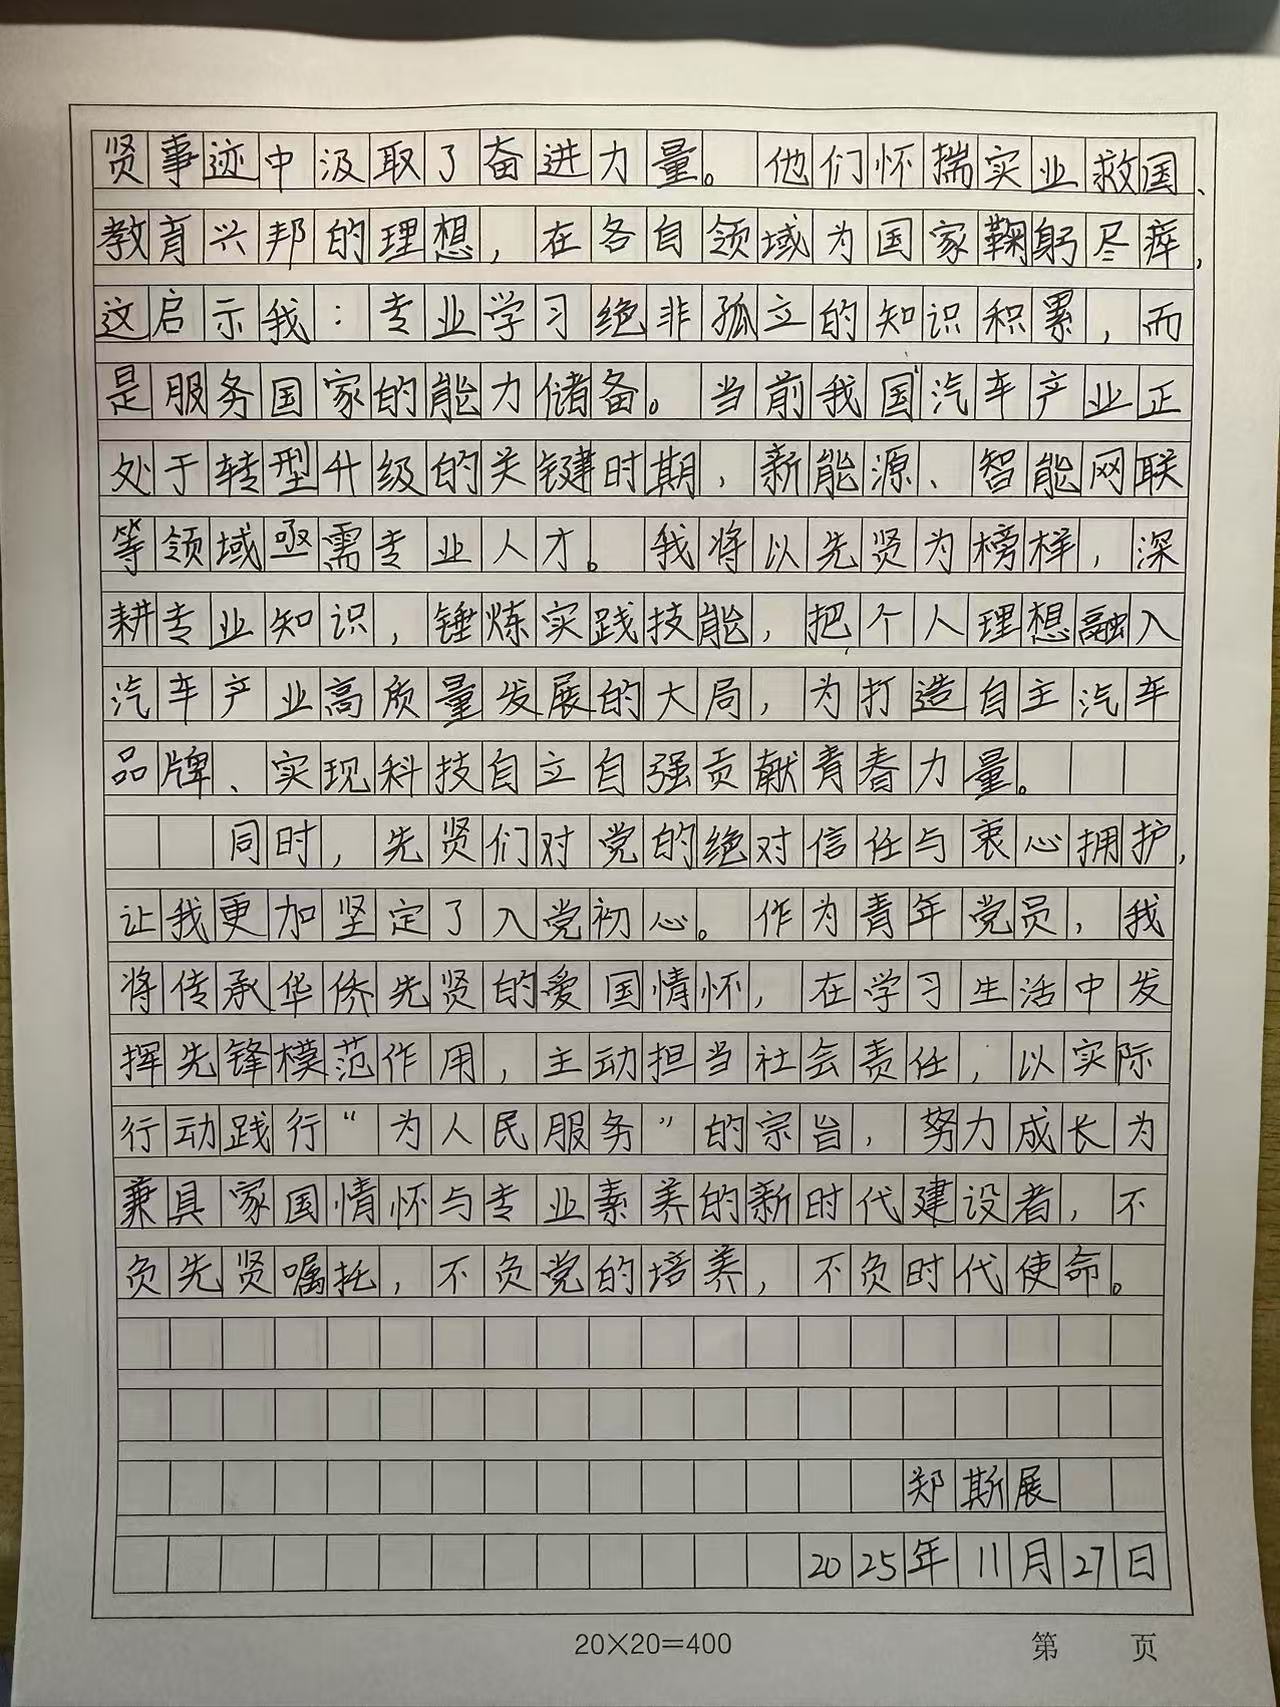 贤事迹中汲取了奋进力量。他们怀揣实业救国、
教育兴邦的理想，在各自领域为国家鞠躬尽瘁，
这启示我：专业学习绝非孤立的知识积累，而
是服务国家的能力储备。当前我国汽车产业正
处于转型升级的关键时期，新能源、智能网联
等领域亟需专业人才。我将以先贤为榜样，深
耕专业知识，锤炼实践技能，把个人理想融入
汽车产业高质量发展的大局，为打造自主汽车
品牌、实现科技自立自强贡献青春力量。
同时，先贤们对党的绝对信任与衷心拥护，
让我更加坚定了入党初心。作为青年党员，我
将传承华侨先贤的爱国情怀，在学习生活中发
挥先锋模范作用，主动担当社会责任，以实际
行动践行“为人民服务”的宗旨，努力成长为
兼具家国情怀与专业素养的新时代建设者，不
负先贤嘱托，不负党的培养，不负时代使命。
郑斯展
2025年11月27日
20×20=400 第 页